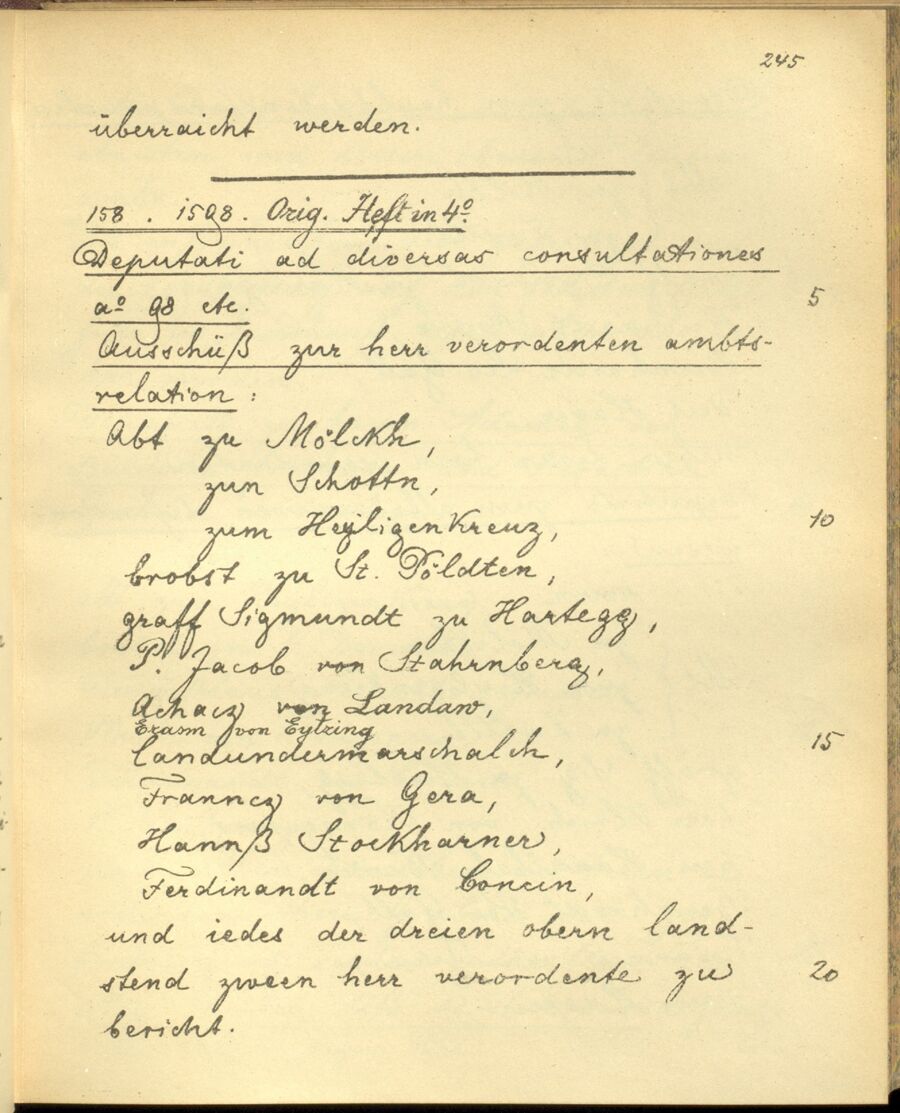 245
überraicht werden.
158. 1598. Orig. Heft in 4º.
Deputati ad diversas consultationes
aº 98 etc. 5
Ausschüß zur herr verordenten ambts-
relation:
Abt zu Mölckh,
zun Schottn,
zum Heyligenkreuz, 10
brobst zu St. Pöldten,
graff Sigmundt zu Hartegg,
P. Jacob von Stahrnberg,
Achacz von Landaw,
Erasm von Eytzing
landundermarschalch, 15
Franncz von Gera,
Hannß Stockharner,
Ferdinandt von Concin,
und iedes der dreien obern land-
stend zween herr verordente zu 20
bericht.